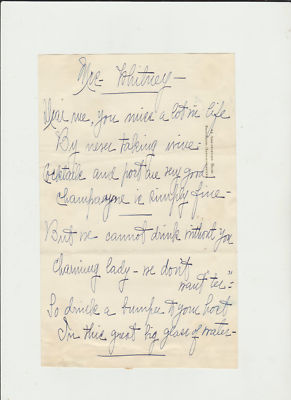 Mrs. Whitney —
Dear me, you miss a lot in life
By never taking wine.
Cocktails and port are very good
Champagne is simply fine —
But we cannot drink without you
Charming lady — we don't
want ter" —
So drink a bumper to your host
In this great big glass of water —